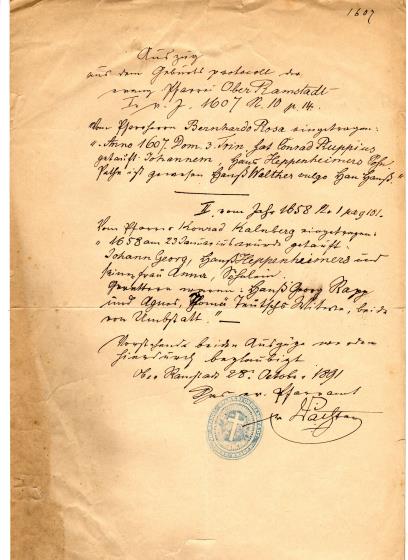 1607
Auszug
aus dem Geburtsprotocoll der
evang Pfarrei Ober Ramstadt
I. v. J. 1607 N. 10 p. 14.
Vom Pfarrherrn Bernhardo Rosa eingetragen:
"Anno 1607. Dom. 3. Trin. hat Conrad Kuppius
getauft Johannem, Hans Heppenheimers Sohn
Pathe ist gewesen Hanß Walther vulgo Han Hanß."
II. vom Jahr 1658 No 1 pag 131.
Vom Pfarrer Konrad Kalnberg eingetragen:
"1658 am 23 Januarius wurde getauft:
Johann Georg, Hanß Heppenheimers und
seiner Frau Anna, Söhnlein.
Gevattern waren: Hanß Georg Rapp
und Agnes, Witwe, beide
von Umbstatt."
Vorstehende beiden Auszüge werden
hierdurch beglaubigt
Ober Ramstadt 28. October 1891
Das ev. Pfarramt